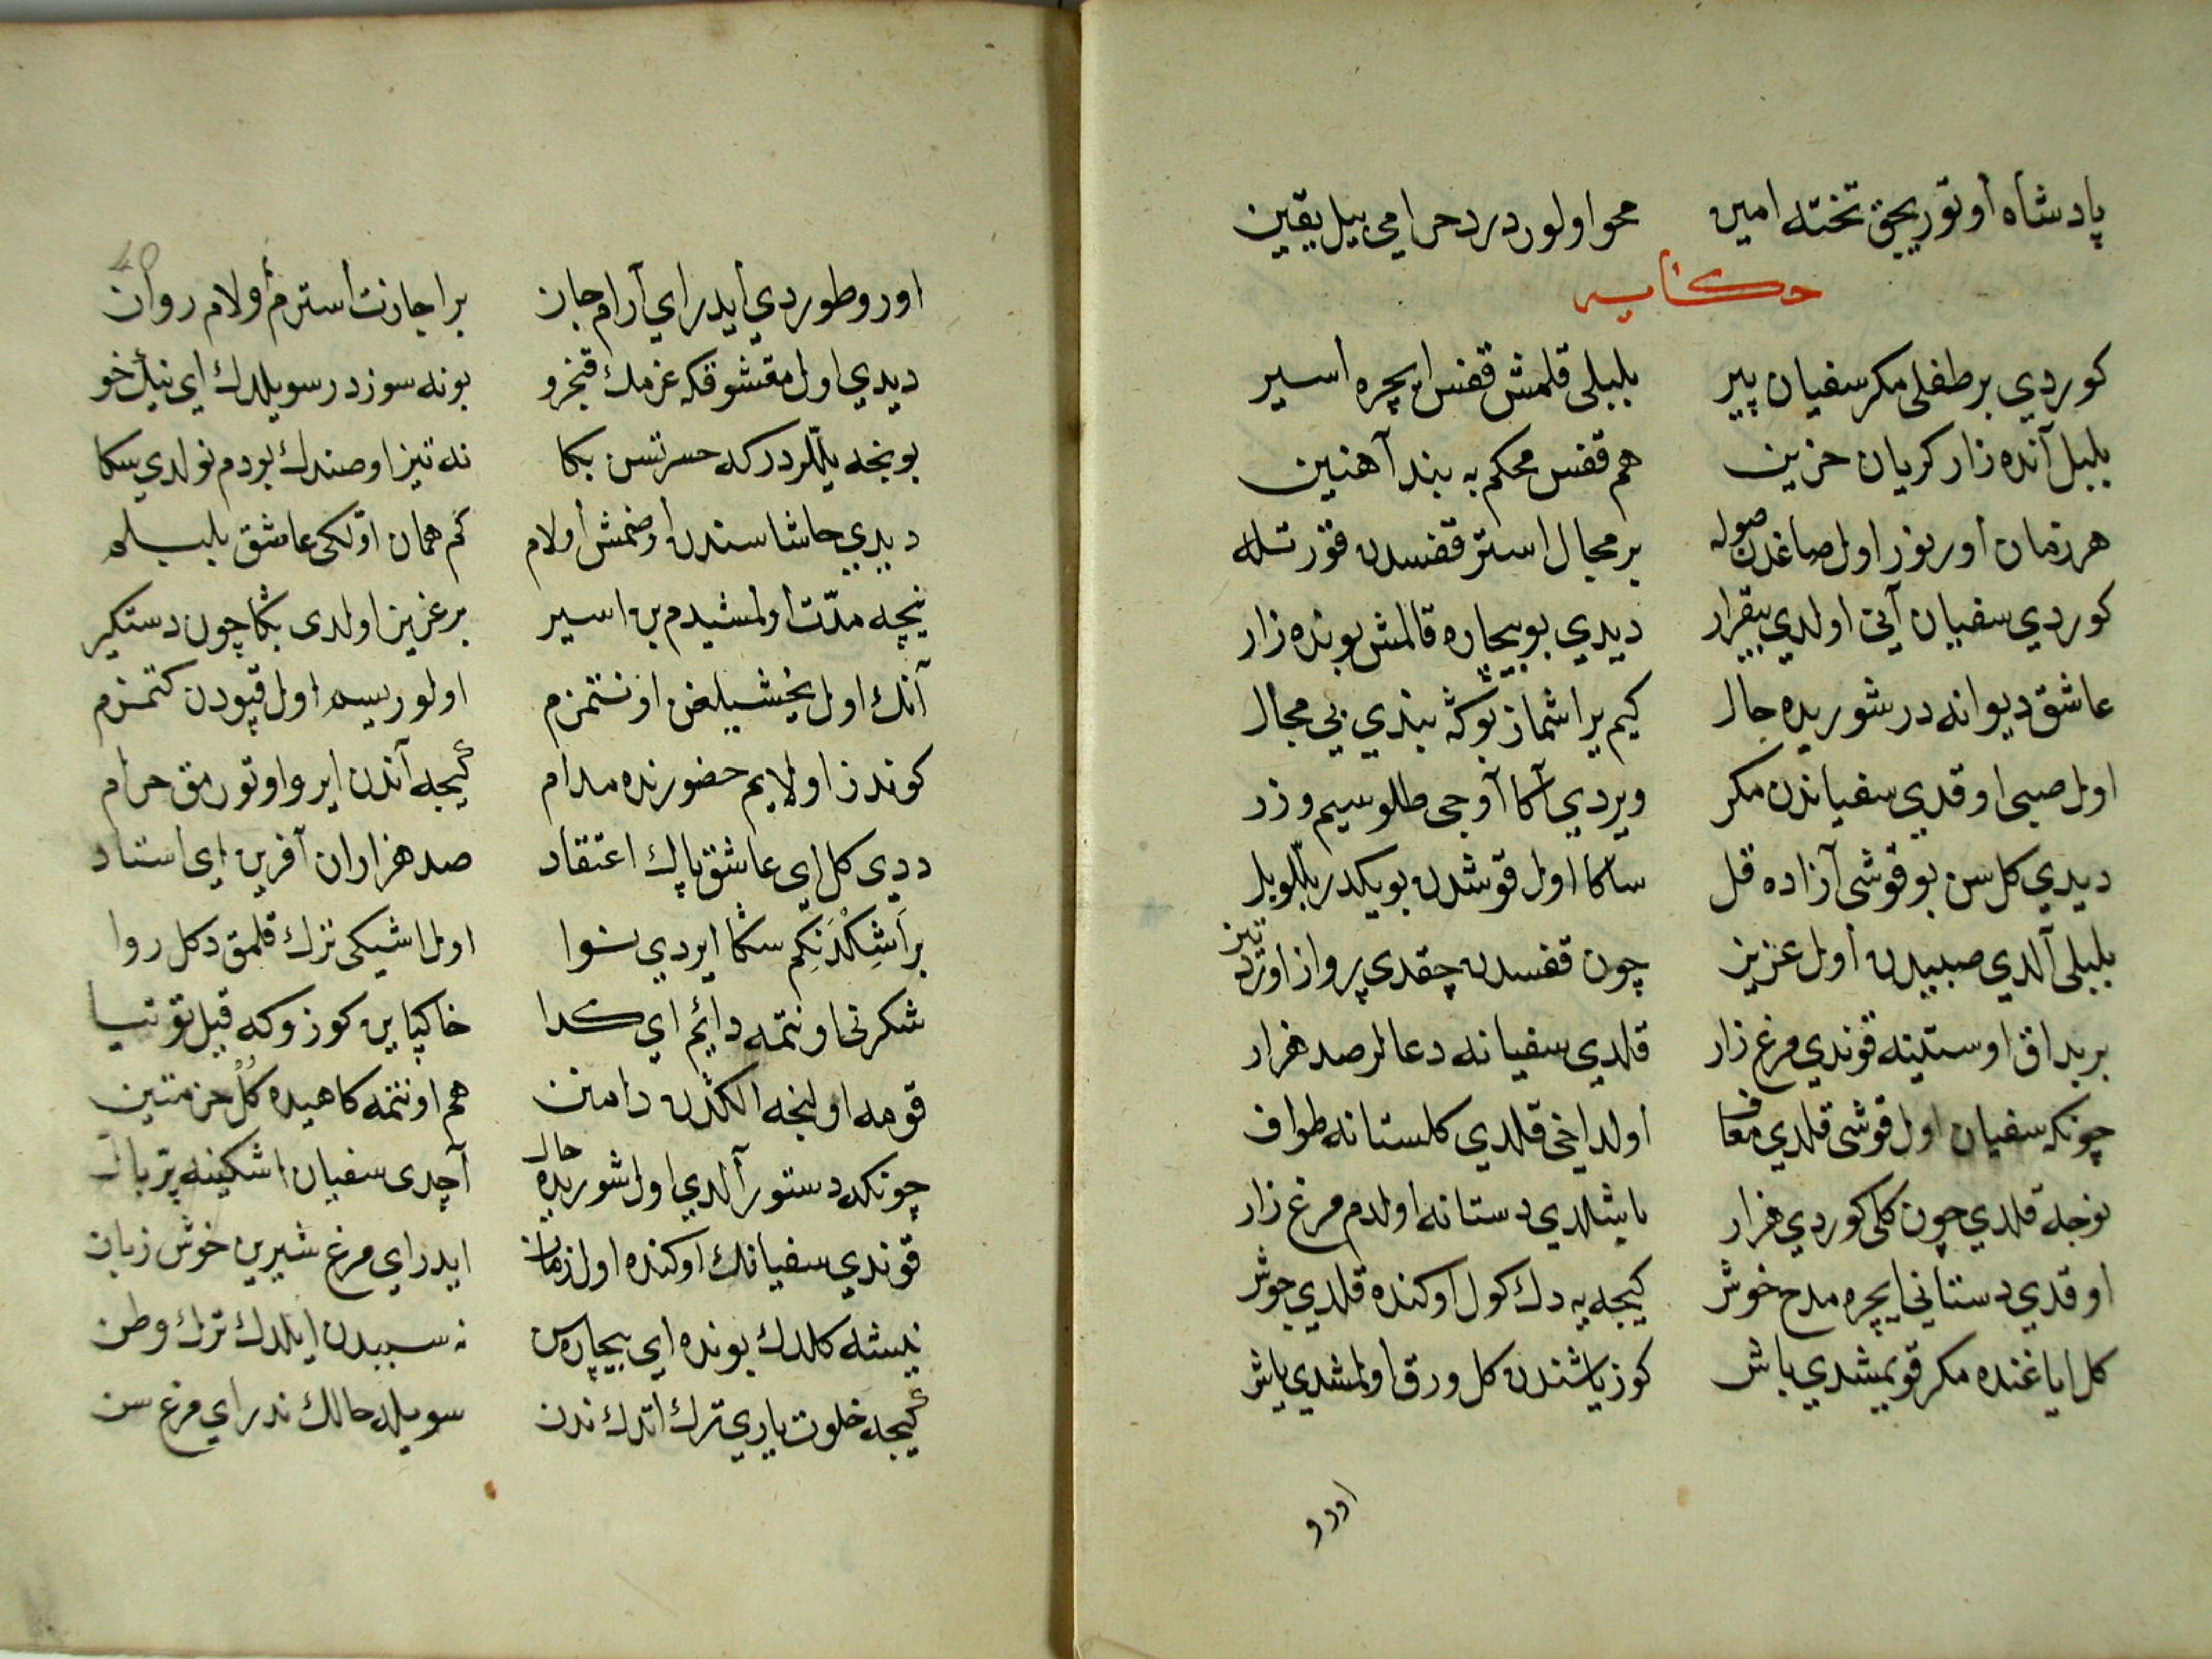 پادشاه اوتوریجق تختنه امین محو اولور درد حرامی بیل یقین
حكایه
كوردی بر طفلی مكر سفیان پیر بلبلی قلمش قفس ایچره اسیر
بلبل آنده زار كریان حزین هم قفس محكم به بند آهنین
هر زمان اورنور اول صاغدن صوله بر مجال استر قفسدن قورتله
كوردی سفیان آنی اولدی بیقرار دیدی بو بیچاره قالمش بونده زار
عاشق دیوانه در شوریده حال كیم یراشماز بوكه بندی بی مجال
اول صبی اوقدی سفیاندن مكر ویردی آكا آوجی طلو سیم و زر
دیدی كل سن بو قوشی آزاده قل ساكا اول قوشدن بو یكدر بللو بل
بلبلی آلدی صبیدن اول عزیز چون قفسدن چقدی پرواز اوردی تیز
بر بداق اوستینه قوندی مرغ زار قلدی سفیانه دعالر صد هزار
چونكه سفیان اول قوشی قلدی معاف اولداخی قلدی كلستانه طواف
نوحه قلدی چون كلی كوردی هزار باشلدی دستانه اولدم مرغ زار
اوقدی دستانی ایچره مدح خوش كیجه یه دك كول اوكنده قلدی جوش
كل ایاغنده مكر قویمشدی باش كوز یاشندن كل ورق اولمشدی یاش
اورو
40
اورو طوردی ایدر ای آرام جان بر اجازت استرم اولام روان
دیدی اول معشوقكه عزمك قنجرو بو نه سوزدر سویلدك ای نیك خو
بونجه ییللردركه حسرتسن بكا نه تیز اوصندك بودم نولدی سكا
دیدی حاشا سندن اوصنمش اولام كم همان اولكی عاشق بلبلم
نیچه مدت اولمشیدم بن اسیر بر عزیز اولدی بكا چون دستكیر
آنك اول یخشیلغن اونتمزم اولوریسم اول قپودن كتمزم
كوندز اولایم حضورنده مدام كیجه آندن ایرو اوتورمق حرام
ددی كل ای عاشق پاك اعتقاد صد هزاران آفرین ای استاد
بر اشكدنكم سكا ایردی نوا اول اشیكی ترك قلمق دكل روا
شكرنی اونتمه دائم ای كدا خاكپاین كوزوكه قیل توتیا
قومه اولنجه الكدن دامنن هم اونتمه كاهیده كل خرمتین
چونكه دستور آلدی اول شوریده حال آچدی سفیان اشكینه پر بال
قوندی سفیانك اوكنده اول زمان ایدر ای مرغ شیرین خوش زبان
نیشه كلدك بونده ای بیچاره سن نه سببدن ایلدك ترك وطن
كیجه خلوت یاری ترك اتدك ندن سویله حالك ندر ای مرغ سن